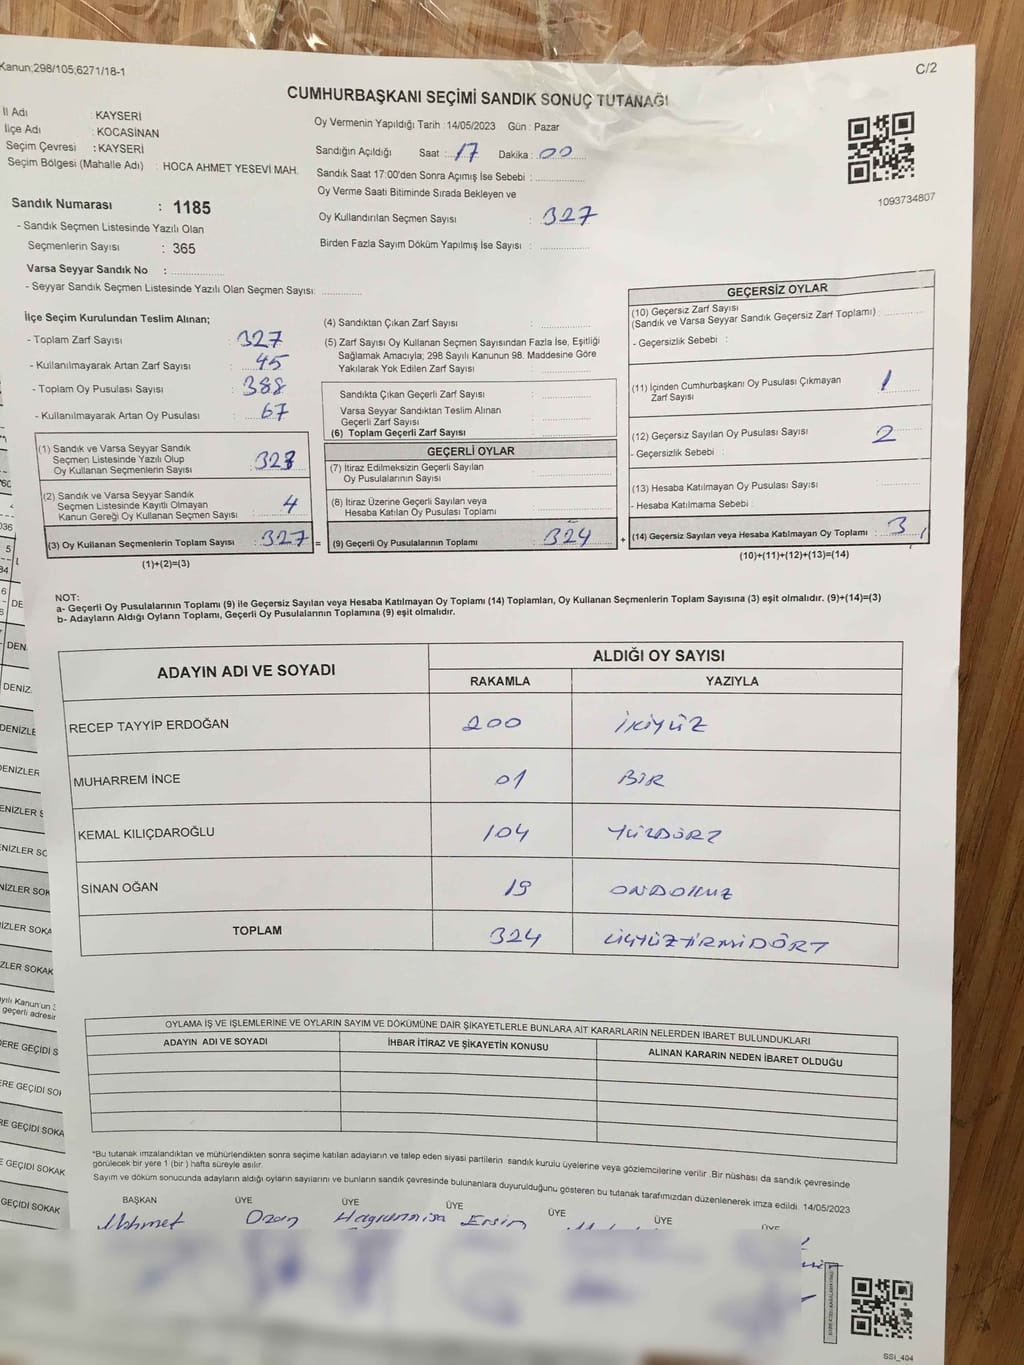 Kanun;298/105;6271/18-1
C/2
CUMHURBAŞKANI SEÇİMİ SANDIK SONUÇ TUTANAĞI
İl Adı : KAYSERİ
İlçe Adı : KOCASİNAN
Seçim Çevresi : KAYSERİ
Seçim Bölgesi (Mahalle Adı) : HOCA AHMET YESEVİ MAH.
Sandık Numarası : 1185
- Sandık Seçmen Listesinde Yazılı Olan
Seçmenlerin Sayısı : 365
Varsa Seyyar Sandık No :
- Seyyar Sandık Seçmen Listesinde Yazılı Olan Seçmen Sayısı:
Oy Vermenin Yapıldığı Tarih : 14/05/2023 Gün : Pazar
Sandığın Açıldığı Saat : 17 Dakika : 00
Sandık Saat 17:00'den Sonra Açımış İse Sebebi :
Oy Verme Saati Bitiminde Sırada Bekleyen ve
Oy Kullandırılan Seçmen Sayısı : 327
Birden Fazla Sayım Döküm Yapılmış İse Sayısı :
1093734807
İlçe Seçim Kurulundan Teslim Alınan;
- Toplam Zarf Sayısı : 327
- Kullanılmayarak Artan Zarf Sayısı : 45
- Toplam Oy Pusulası Sayısı : 388
- Kullanılmayarak Artan Oy Pusulası : 67
(1) Sandık ve Varsa Seyyar Sandık
Seçmen Listesinde Yazılı Olup
Oy Kullanan Seçmenlerin Sayısı : 323
(2) Sandık ve Varsa Seyyar Sandık
Seçmen Listesinde Kayıtlı Olmayan
Kanun Gereği Oy Kullanan Seçmen Sayısı : 4
(3) Oy Kullanan Seçmenlerin Toplam Sayısı : 327 =
(1)+(2)=(3)
(4) Sandıktan Çıkan Zarf Sayısı :
(5) Zarf Sayısı Oy Kullanan Seçmen Sayısından Fazla İse, Eşitliği
Sağlamak Amacıyla; 298 Sayılı Kanunun 98. Maddesine Göre
Yakılarak Yok Edilen Zarf Sayısı :
Sandıkta Çıkan Geçerli Zarf Sayısı :
Varsa Seyyar Sandıktan Teslim Alınan
Geçerli Zarf Sayısı :
(6) Toplam Geçerli Zarf Sayısı :
GEÇERLİ OYLAR
(7) İtiraz Edilmeksizin Geçerli Sayılan
Oy Pusulalarının Sayısı :
(8) İtiraz Üzerine Geçerli Sayılan veya
Hesaba Katılan Oy Pusulası Toplamı :
(9) Geçerli Oy Pusulalarının Toplamı : 324 +
GEÇERSİZ OYLAR
(10) Geçersiz Zarf Sayısı
(Sandık ve Varsa Seyyar Sandık Geçersiz Zarf Toplamı) :
- Geçersizlik Sebebi :
(11) İçinden Cumhurbaşkanı Oy Pusulası Çıkmayan
Zarf Sayısı : 1
(12) Geçersiz Sayılan Oy Pusulası Sayısı : 2
- Geçersizlik Sebebi :
(13) Hesaba Katılmayan Oy Pusulası Sayısı :
- Hesaba Katılmama Sebebi :
(14) Geçersiz Sayılan veya Hesaba Katılmayan Oy Toplamı : 3
(10)+(11)+(12)+(13)=(14)
NOT:
a- Geçerli Oy Pusulalarının Toplamı (9) ile Geçersiz Sayılan veya Hesaba Katılmayan Oy Toplamı (14) Toplamları, Oy Kullanan Seçmenlerin Toplam Sayısına (3) eşit olmalıdır. (9)+(14)=(3)
b- Adayların Aldığı Oyların Toplamı, Geçerli Oy Pusulalarının Toplamına (9) eşit olmalıdır.
ADAYIN ADI VE SOYADI
ALDIĞI OY SAYISI
RAKAMLA YAZIYLA
RECEP TAYYİP ERDOĞAN 200 İKİYÜZ
MUHARREM İNCE 01 BİR
KEMAL KILIÇDAROĞLU 104 YÜZDÖRT
SİNAN OĞAN 19 ONDOKUZ
TOPLAM 324 ÜÇYÜZYİRMİDÖRT
OYLAMA İŞ VE İŞLEMLERİNE VE OYLARIN SAYIM VE DÖKÜMÜNE DAİR ŞİKAYETLERLE BUNLARA AİT KARARLARIN NELERDEN İBARET BULUNDUKLARI
ADAYIN ADI VE SOYADI İHBAR İTİRAZ VE ŞİKAYETİN KONUSU ALINAN KARARIN NEDEN İBARET OLDUĞU
*Bu tutanak imzalandıktan ve mühürlendikten sonra seçime katılan adayların ve talep eden siyasi partilerin sandık kurulu üyelerine veya gözlemcilerine verilir .Bir nüshası da sandık çevresinde
görülecek bir yere 1 (bir ) hafta süreyle asılır.
Sayım ve döküm sonucunda adayların aldığı oyların sayılarını ve bunların sandık çevresinde bulunanlara duyurulduğunu gösteren bu tutanak tarafımızdan düzenlenerek imza edildi. 14/05/2023
BAŞKAN ÜYE ÜYE ÜYE ÜYE ÜYE ÜYE
Mehmet Ozan Ersin
SSİ_404